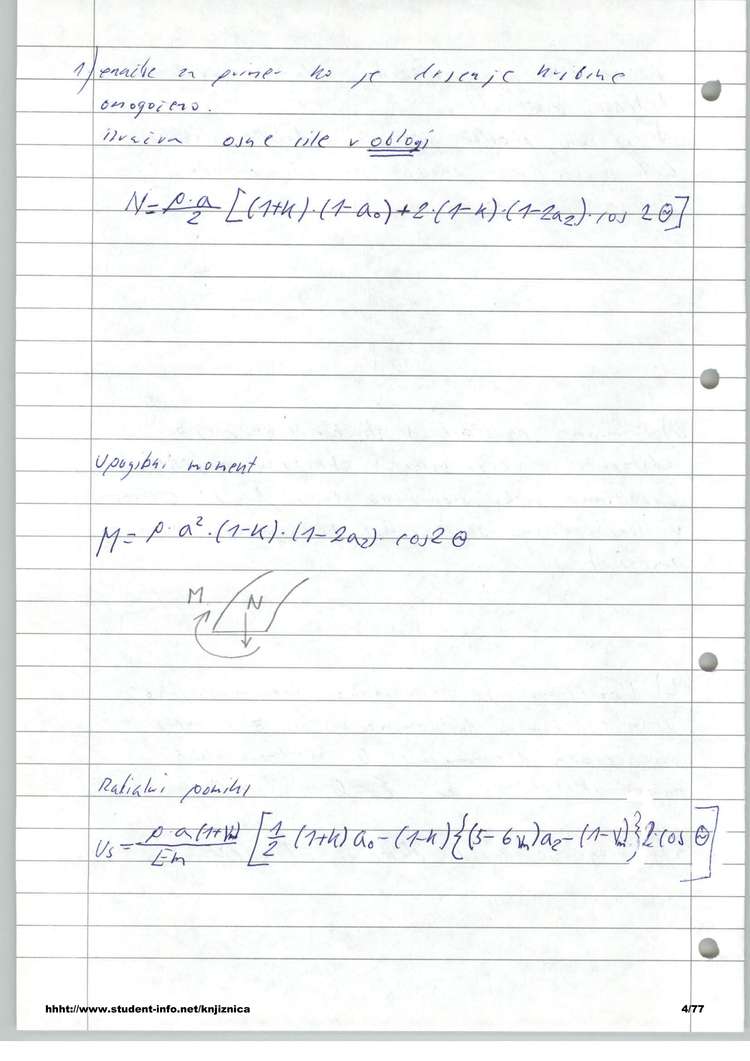 1) enačbe za primer ko je drsenje hribine
omogočeno.
izraziva osne sile v oblogi
N = p·a/2 [(1+k)·(1-a₀)+2·(1-k)·(1-2a₂)·cos 2Θ]
Upogibni moment
M = p·a²·(1-k)·(1-2a₂)·cos2Θ
M N
Radialni pomiki
Us = p·a(1+νm)/Em [1/2 (1+k)a₀-(1-k){(5-6νm)a₂-(1-νm)}2cosΘ]
hhht://www.student-info.net/knjiznica 4/77